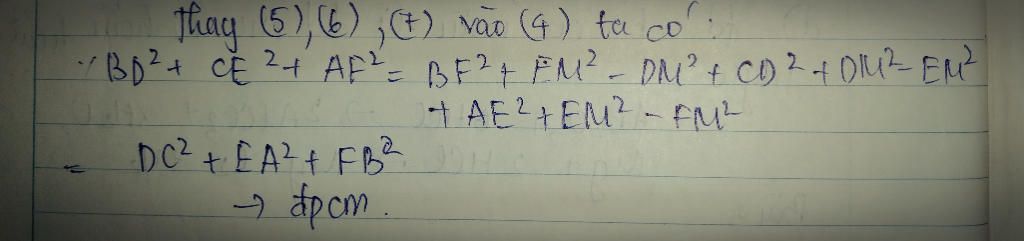 Thay (5), (6), (7) vào (4) ta có :
BD² + CE² + AF² = BF² + FM² - DM² + CD² + DM² - EM²
+ AE² + EM² - FM²
= DC² + EA² + FB²
→ đpcm.